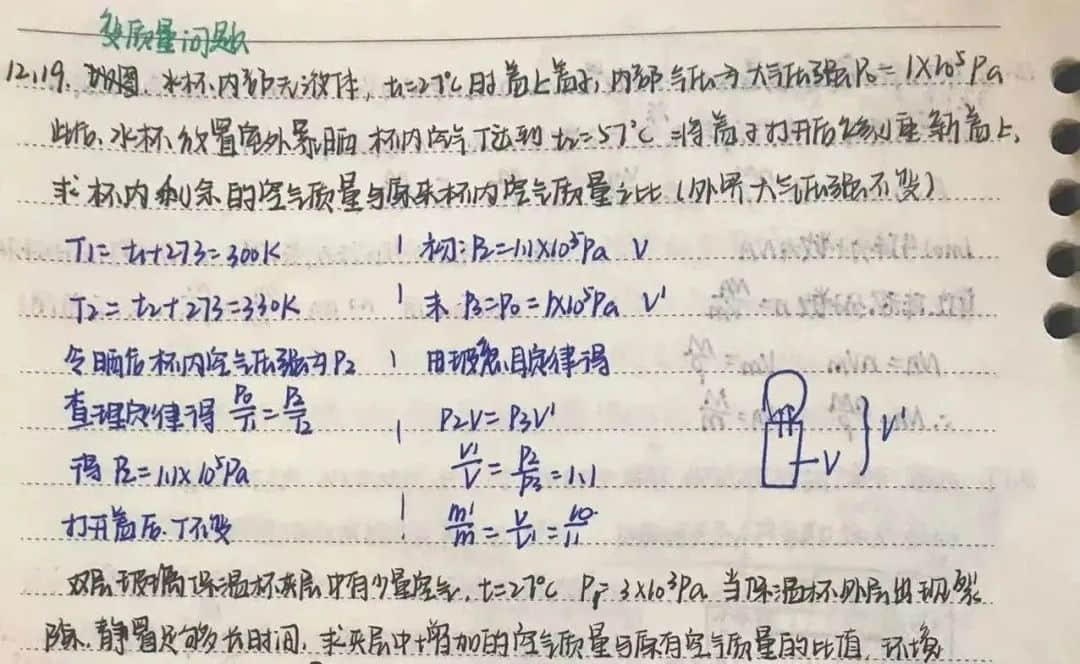 变质量问题
12.19. 如图. 水杯内部无液体, t₁=27°C时盖上盖子, 内部气压为大气压强P₀=1×10⁵Pa
此后, 水杯放置室外暴晒 杯内空气T达到t₂=57°C 将盖子打开后 重新盖上,
求杯内剩余的空气质量与原来杯内空气质量之比(外界大气压强不变)
T₁= t₁+273=300K
T₂= t₂+273=330K
令晒后杯内空气压强为P₂
查理定律得 P₀/T₁=P₂/T₂
得P₂=1.1×10⁵Pa
打开盖后. T不变
初: P₂=1.1×10⁵Pa V
末 P₃=P₀=1×10⁵Pa V'
用玻意耳定律得
P₂V=P₃V'
V'/V=P₂/P₃=1.1
m'/m=V/V'=10/11
V'
V
双层玻璃保温杯夹层中有少量空气, t=27°C P₁=3×10³Pa 当保温杯外层出现裂
隙, 静置足够长时间, 求夹层中增加的空气质量与原有空气质量的比值, 环境